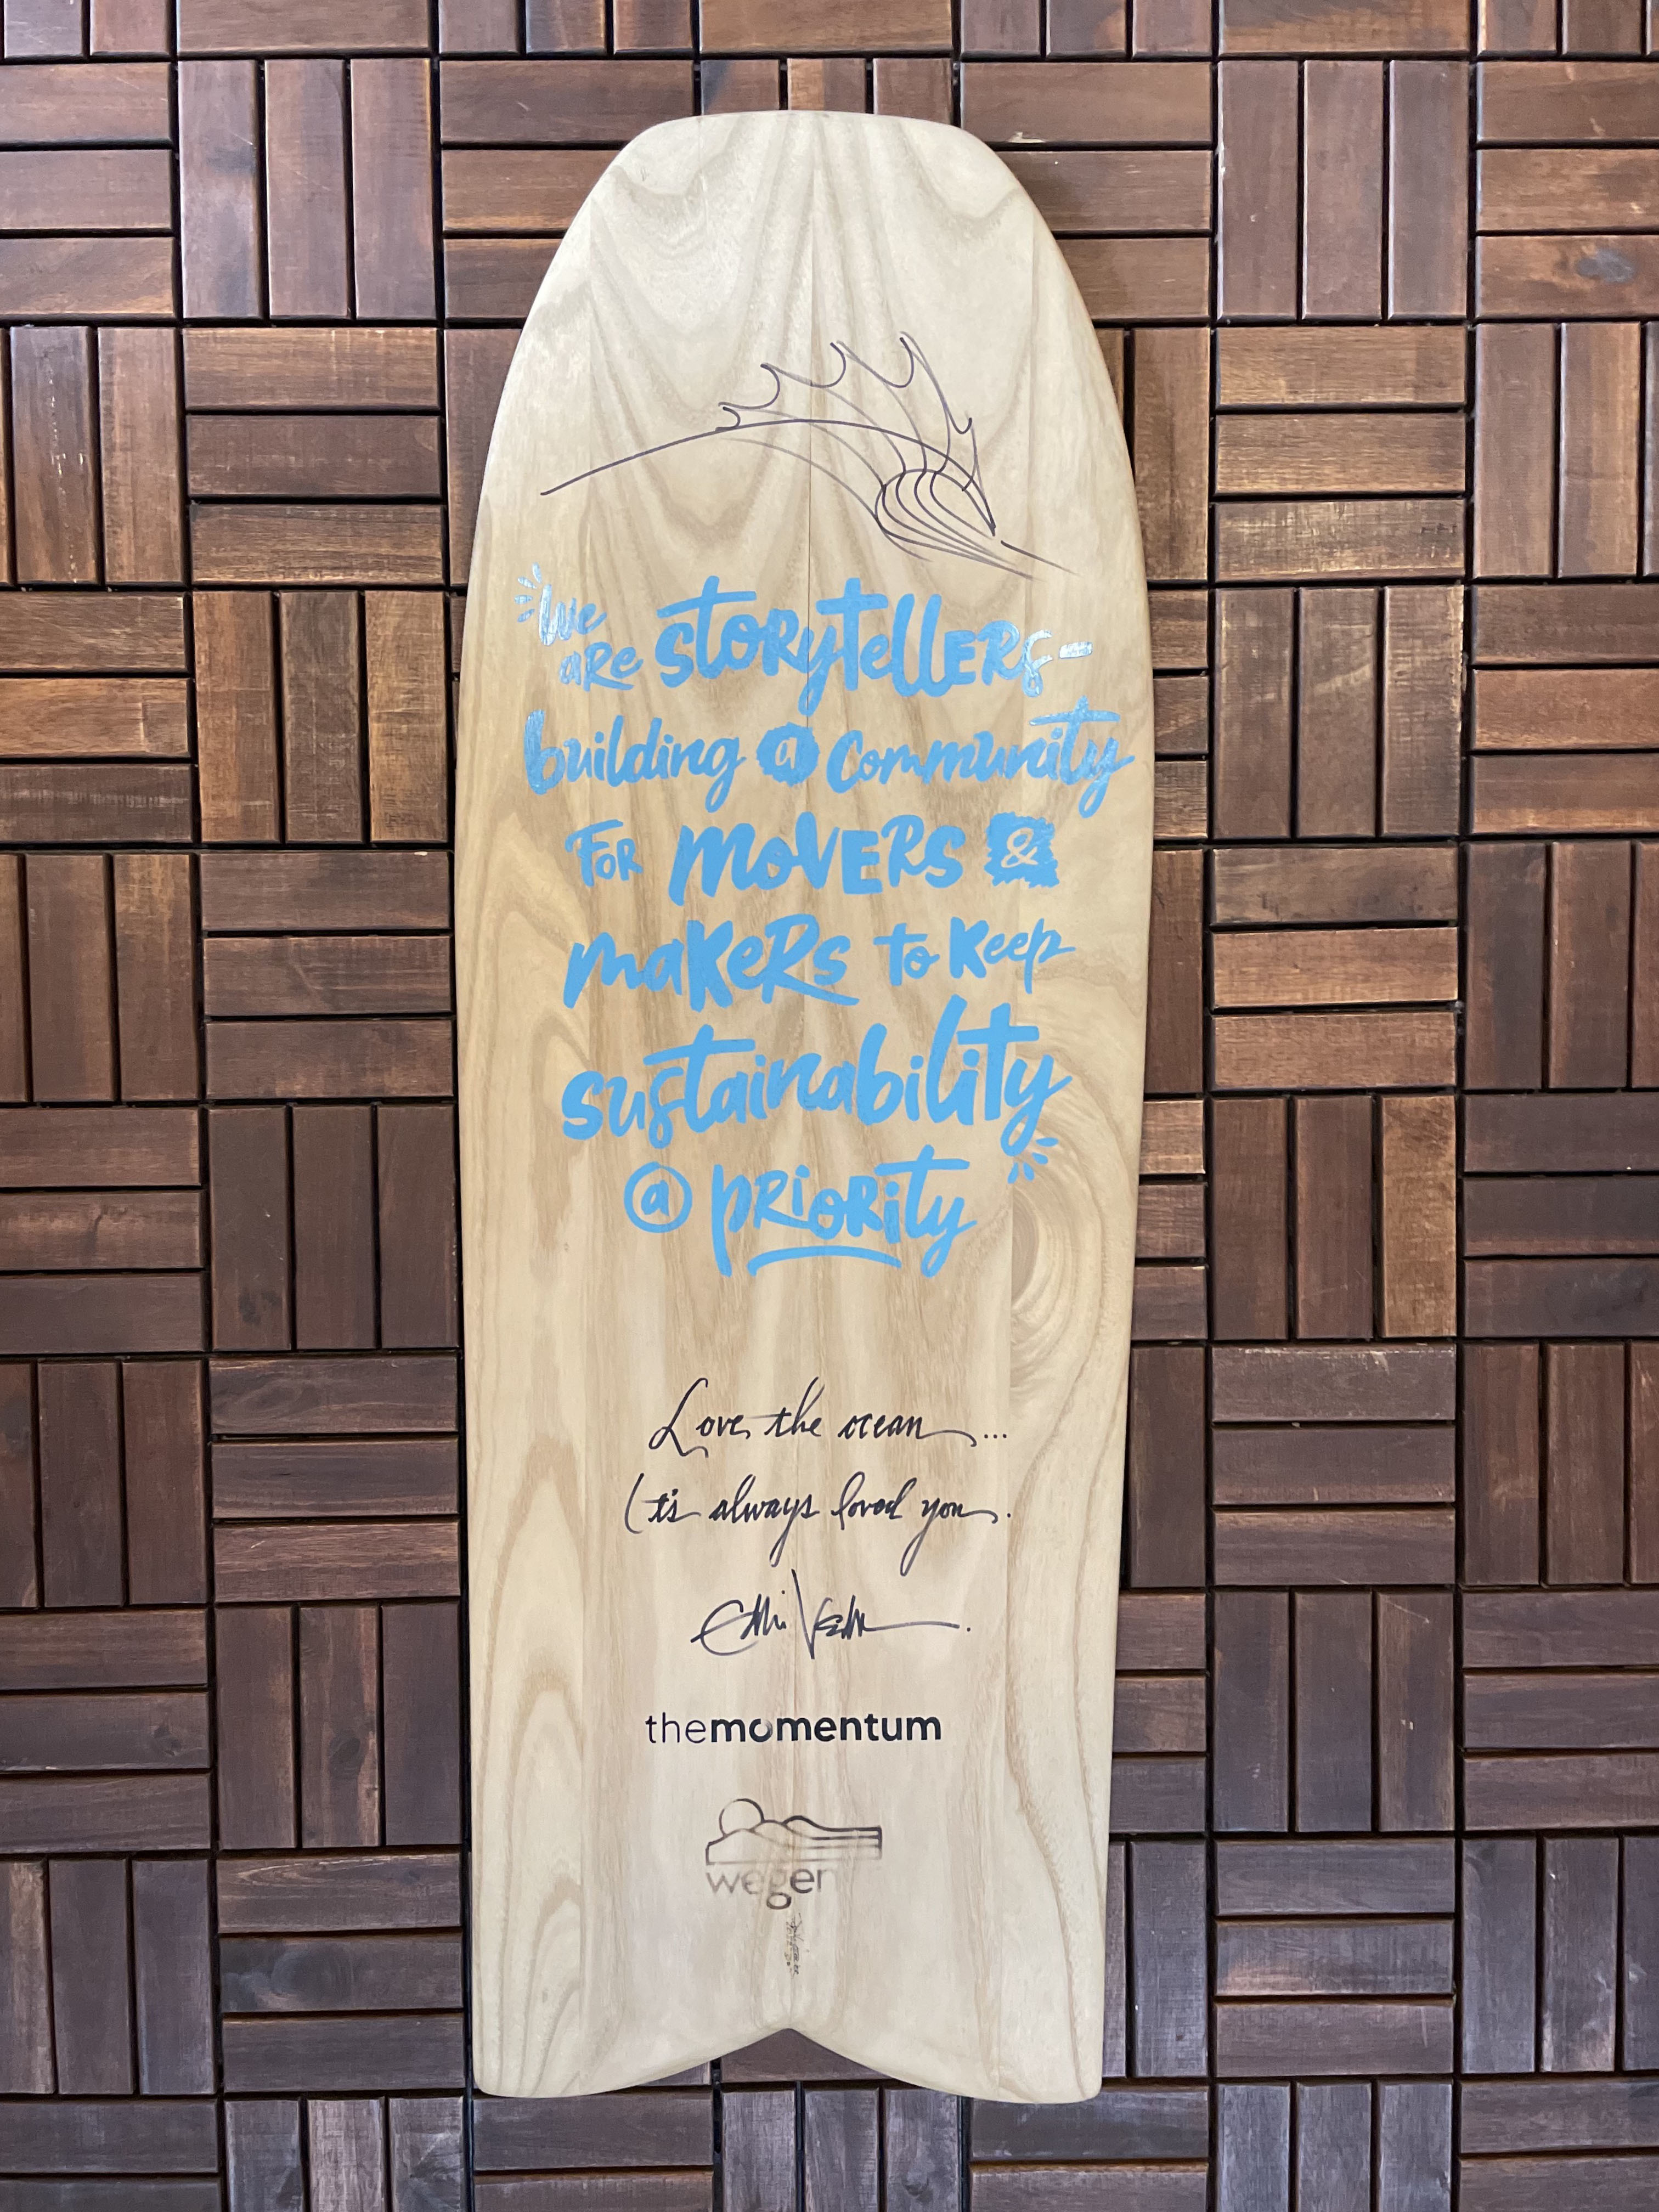 "We
are storytellers-
building a community
for movers &
makers to keep
sustainability
@ priority"
Love the ocean...
It's always loved you.
Eddie Vedder
themomentum
wegener